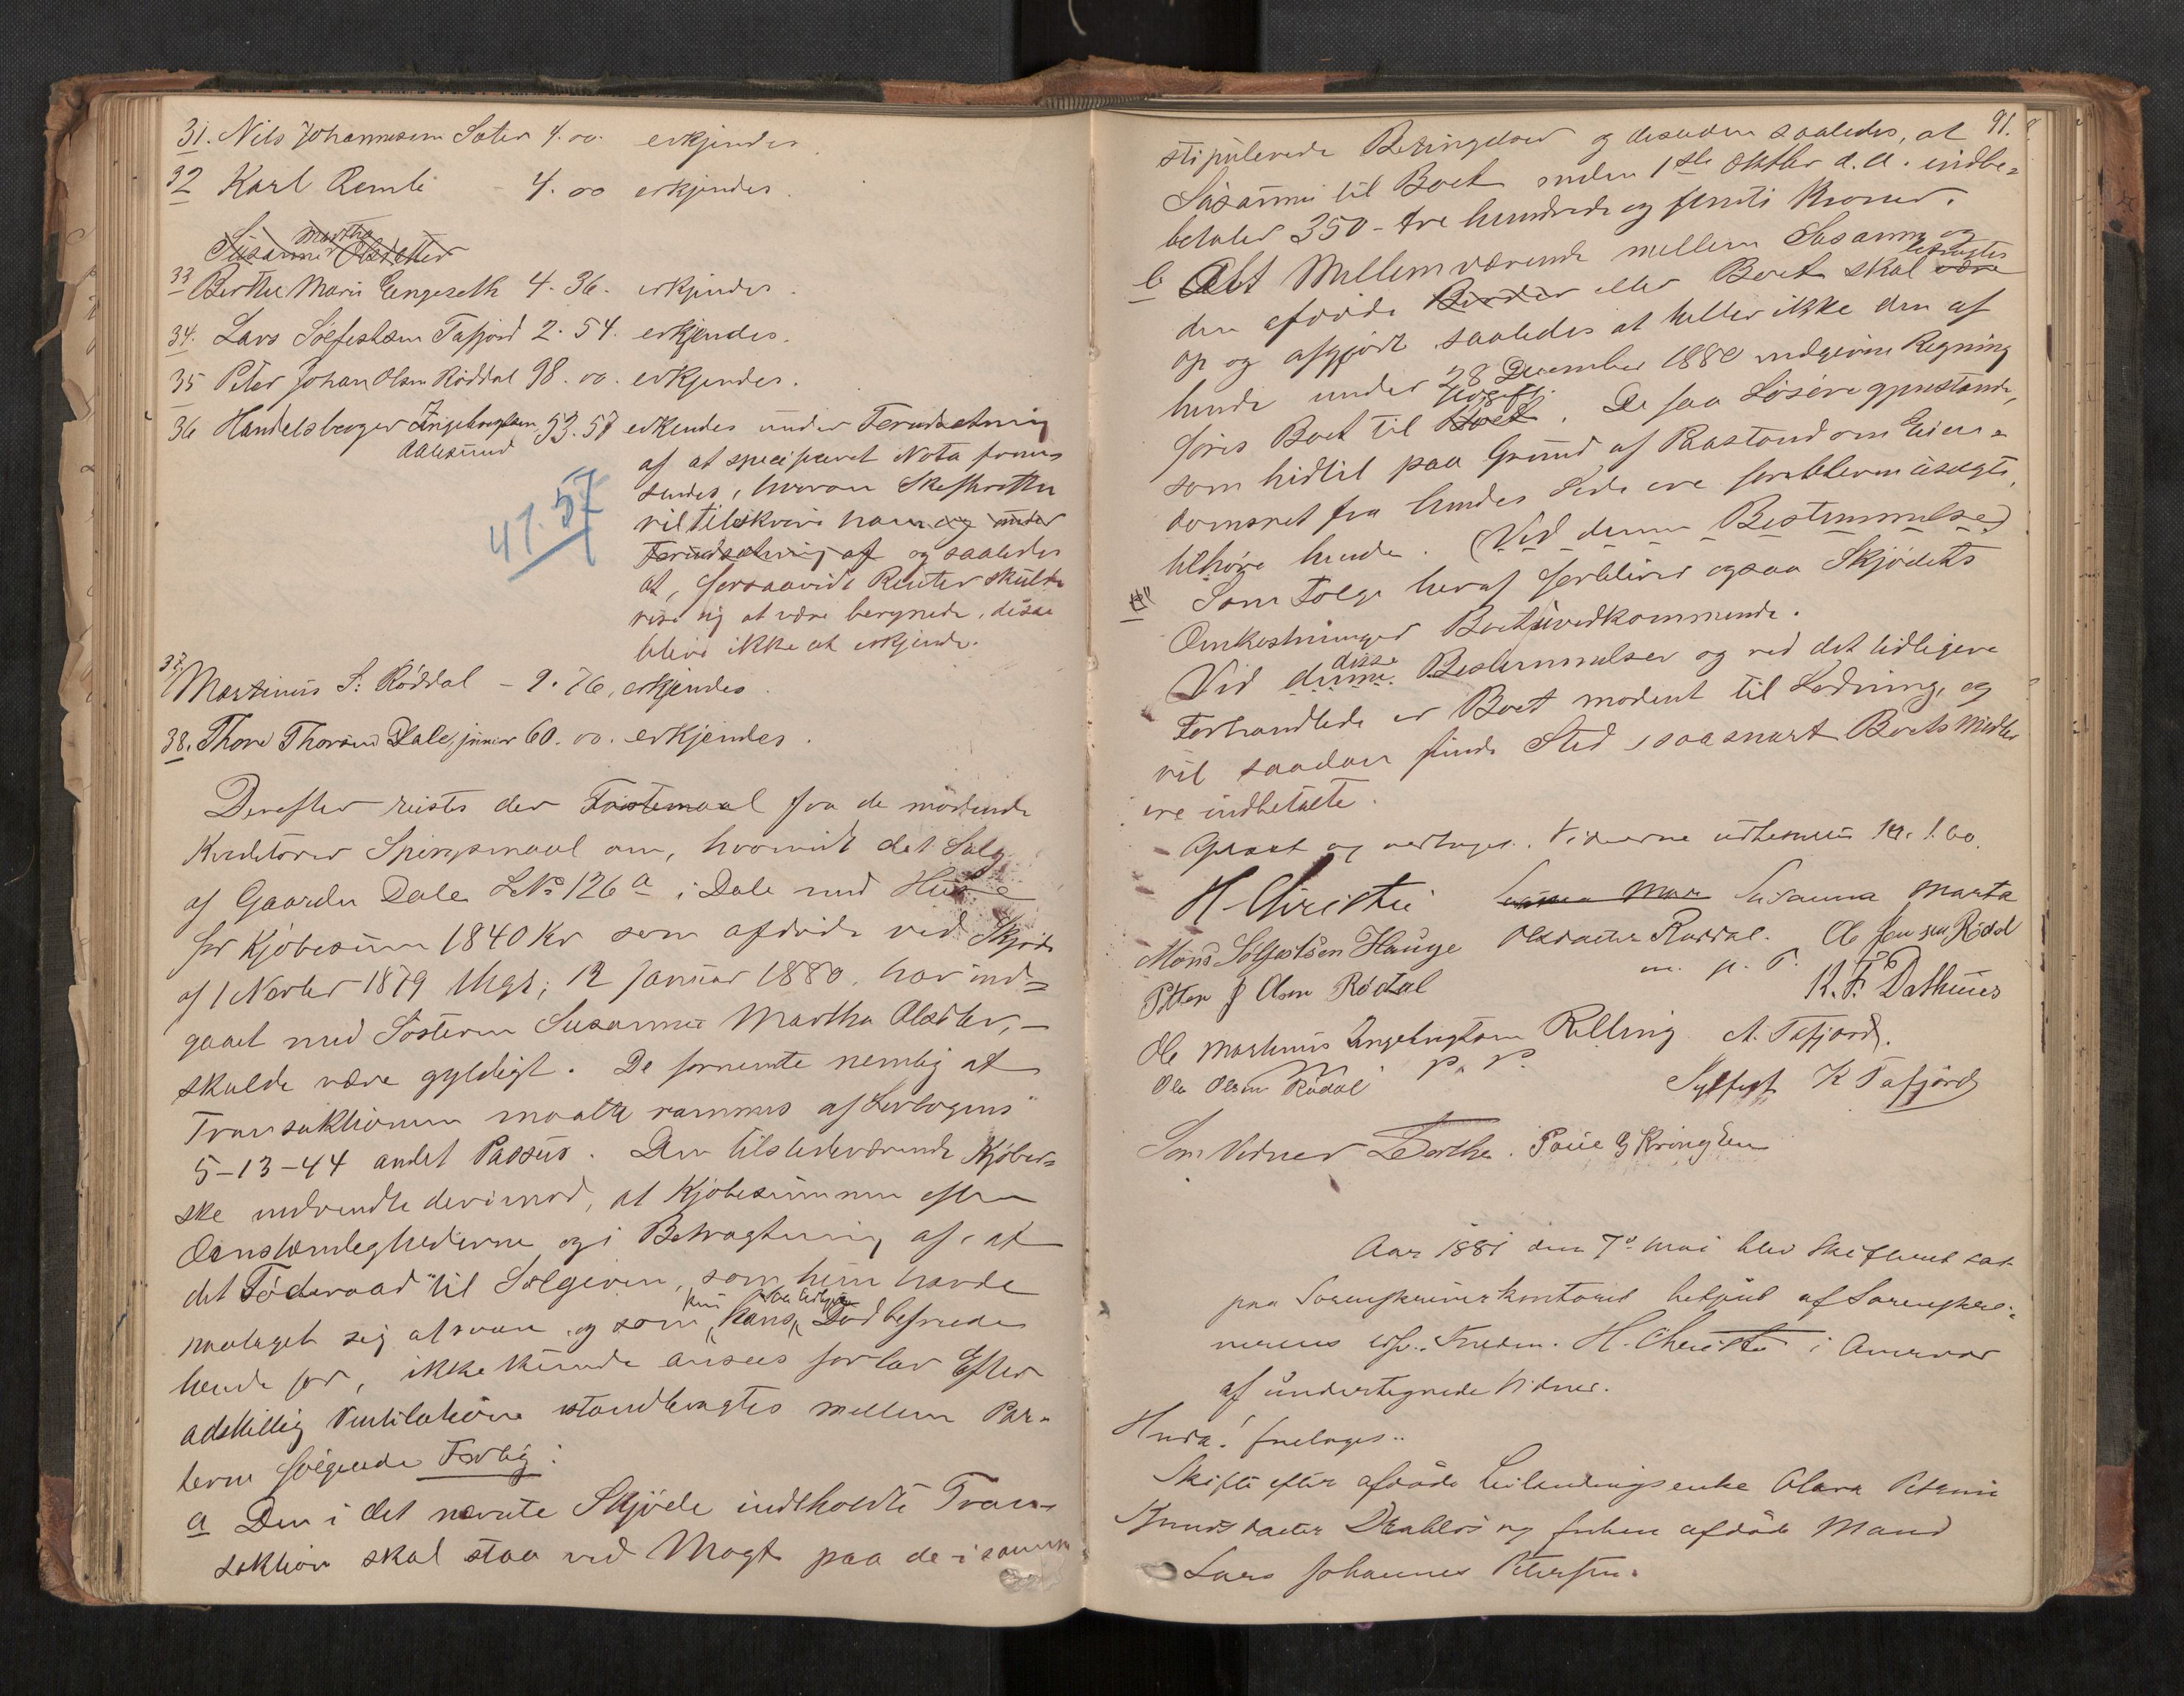 31. Nils Johannesen Sæter 4.00 erkjendes.
32 Karl Remli - 4.00 erkjendes.
Martha
Susanne Olsdatter
33 Berthe Marie Engeseth 4.36. erkjendes.
34. Lars Sølfestsen Tafjord 2.54. erkjendes.
35 Peter Johan Olsen Røddal 98.00. erkjendes.
36 Handelsborger Ingebrigtsen, 53.57 erkendes under Forudsætning
Aalesund
af at specificeret Nota frem-
sendes, hvorom Skifteretten
vil tilskrive ham og under
Forudsætning af og saaledes
at, forsaavidt Renter skulde
vise sig at være beregnede, disse
blive ikke at erkjende.
47.57
37, Martinus S. Røddal - 9.76, erkjendes.
38. Thore Thoresen Dale, junior 60.00. erkjendes.
Derefter reistes der Fristemaal fra de mødende
Kreditorer Spørgsmaal om, hvorvidt det Salg
af Gaarden Dale L No 126 a i Dale med Huse
for Kjøbesum 1840 Kr som afdøde ved Skjøde
af 1 Novbr 1879 thgl. 12 Januar 1880. har ind=
gaaet med Søsteren Susanne Martha Olsdtr, -
skulde være gyldigt. De formente nemlig at
Transaktionen maatte rammes af Lovbogens
5-13-44 andet Passus. Den tilstedeværende Kjøber=
ske indvendte derimod, at Kjøbesummen efter
Omstændighederne og i Betragtning af, at
det Føderaad til Sælgeren, som hun havde
paataget sig at svare og som kun hans tidlige Død befriede
hende for, ikke kunde ansees for lav Efter
adskillig Ventilation istandbragtes mellem Par-
terne følgende Forlig:
a Den i det nævnte Skjøde indeholdte Tran-
saktion skal staa ved Magt paa de i samme
91.
stipulerede Betingelser og desuden saaledes, at
Susanne til Boet inden 1ste Oktbr d.A. indbe=
betaler 350 - tre hundrede og femti Kroner.
b Alt Mellemværende mellem Susanne og
den afdøde Broder eller Boet skal være betragtes
op og afgjort saaledes at heller ikke den af
hende under 28 December 1880 indgivne Regning
føres Boet til Boet Udgift. De faa Løsøregjenstande,
som hidtil paa Grund af Paastand om Eien-
domsret fra hendes Side ere forblevne usolgte,
tilhøre hende. (Ved denne Bestemmelse)
Som Følge heraf forbliver ogsaa Skjødets
Omkostninger Boet uvedkommende.
Ved denne disse Bestemmelser og ved det tidligere
Forhandlede er Boet modent til Slutning, og
vil saadan finde Sted, saasnart Boets Midler
ere indbetalte.
Oplæst og vedtaget. Vidnerne udbetaltes Kr. 1.60.
H. Christie Susanna Mar Susanna Marta
Mons Sølfestsen Hauge Olsdatter Røddal. Ole Jensen Rødal
m. p. P.
Petter J Olsen Rødal K. F. Dathues
Ole Martinus Ingebrigtsen Relling A. Tafjord.
p. P.
Ole Olsen Rødal Sylfest K Tafjord
Som Vidner LBerthe. Poul G Kringsen
Aar 1881 den 7de Mai blev Skifteret sat
paa Sorenskriverkontoret betjent af Sorenskri-
verens edsv. Fuldm. H. Christie i Overvær
af undertegnede Vidner.
Hvda! foretages:
Skifte efter afdøde Leilændingsenke Olava Petrine
Knudsdatter Drabløs og forhen afdøde Mand
Lars Johannes Petersen.